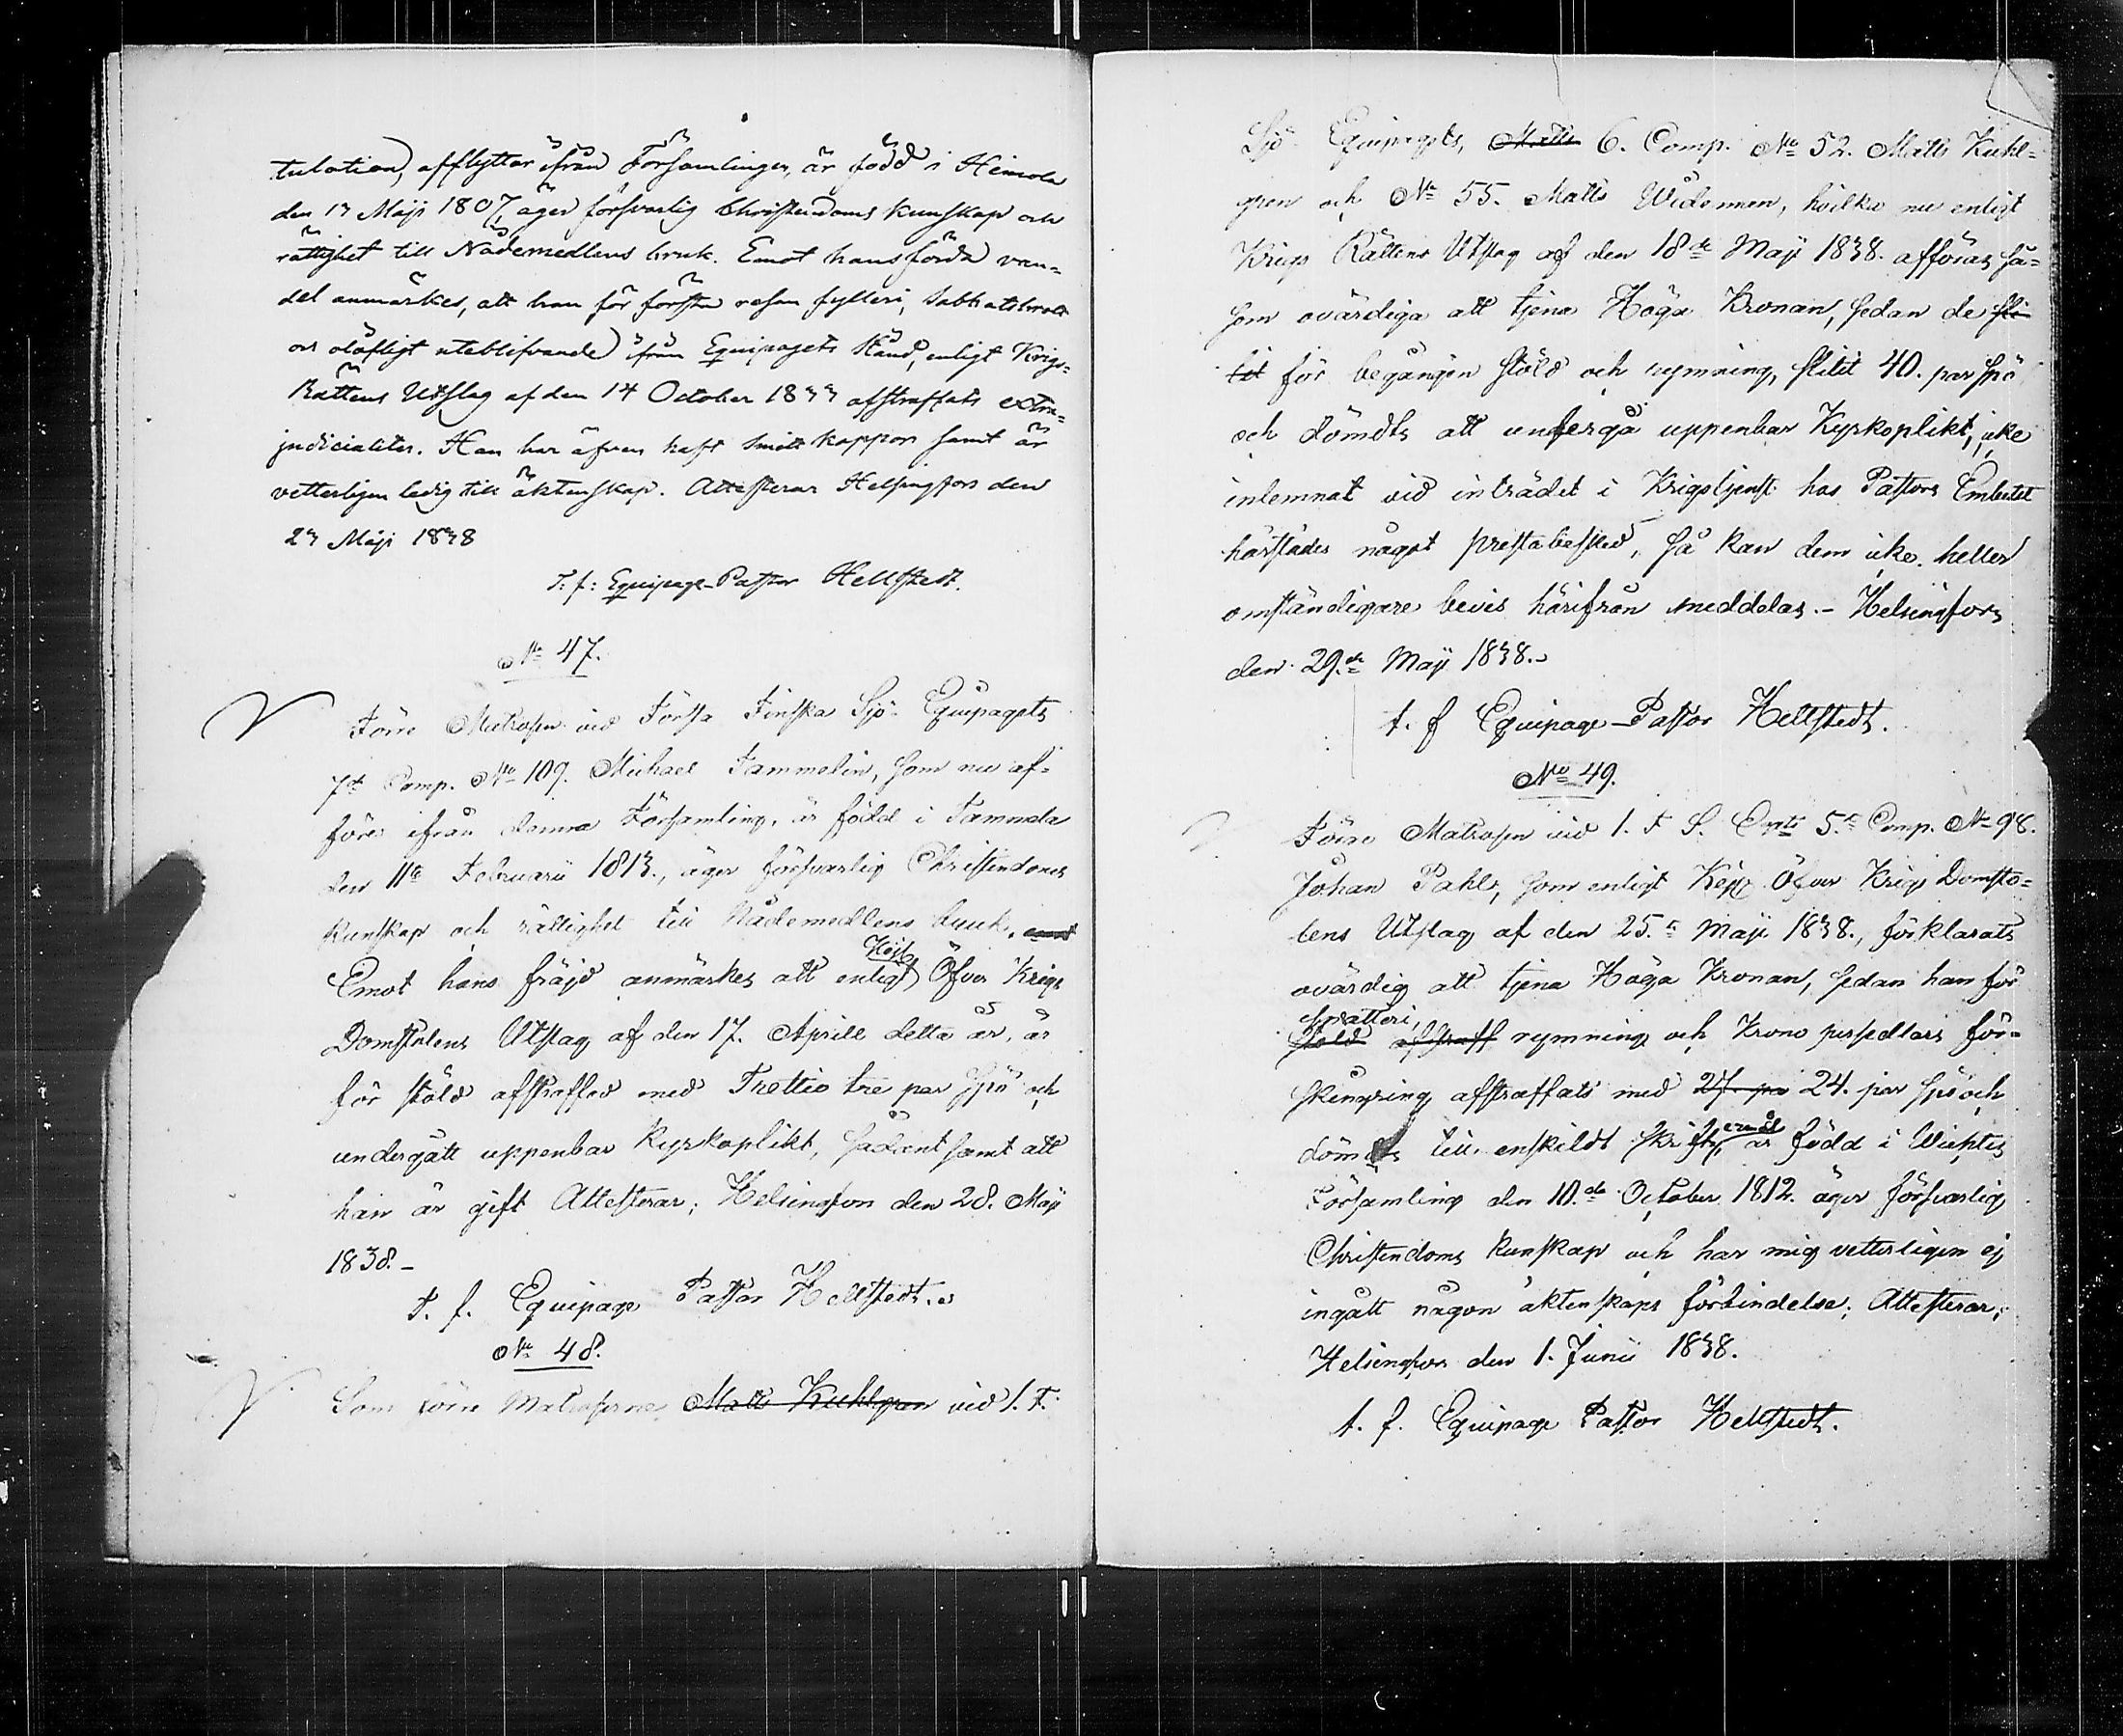 tulation, afflyttar ifrån Församlingen, är född i Heinola
den 13 Maji 1807, äger försvarlig Christendoms kunskap och
rättighet till Nådemedlens bruk. Emot hans förda van-
del anmärkes, att han för första resan fylleri, Sabbatsbrott
och olåfligt uteblifvande ifrån Equipagets Stånd, enligt Krigs-
Rättens Utslag af den 14 October 1833 afstraffats extra-
judicialiter. Han har äfven haft Smittkoppor samt är
vetterligen ledig till äktenskap. Attesterar Helsingfors den
23 Maji 1838
T. f: Equipage-Pastor Hellstedt.
No 47.
Förre Matrosen vid Första Finska Sjö-Equipagets
7de Comp. No 109. Michael Tammelin, som nu af-
föres ifrån denna Församling, är född i Tammela
den 11te Februarii 1813., äger försvarlig Christendoms
kunskap och rättighet till Nådemedlens bruk. emot
Emot hans fräjd anmärkes att enligt Höga Öfver Krigs
Domstolens Utslag af den 17. Aprill detta år, är
för stöld afstraffad med Trettio tre par Spö och
undergått uppenbar Kyrkoplikt, sådant samt att
han är gift Attesterar; Helsingfors den 28. Maji
1838.-
t. f. Equipage Pastor Hellstedt.
No 48.
Som förre Matroserne Matts Kuhlgren vid 1. F.
Sjö Equipagets, Matts 6. Comp. No 52. Matts Kuhl-
gren och No 55. Matts Widenmen, hvilka nu enligt
Krigs Rättens Utslag af den 18de Maji 1838. afföras så-
som ovärdiga att tjena Höga Kronan, sedan de sli-
tit för begången stöld och rymning, slitit 40. par spö
och dömdts att undergå uppenbar Kyrkoplikt, icke
inlemnat vid inträdet i Krigstjenst hos Pastors Embetet
härstädes något prestabesked, så kan dem icke heller
omständigare bevis härifrån meddelas.- Helsingfors
den 29.de Maji 1838.
t. f Equipage-Pastor Hellstedt.
No 49.
Förre Matrosen vid 1. F S. Eqts 5.e Comp. No 98.
Johan Pahl, som enligt Kejs. Öfver Krigs Domsto-
lens Utslag af den 25.e Maji 1838., förklarats
ovärdig att tjena Höga Kronan, sedan han för
snatteri,
Stöld afstraff rymning och Krono persedlars för-
skingring afstraffats med 27. par 24. par spö och
dömdts till enskildt skriftermål, är född i Wichtis
Församling den 10.de October 1812. äger försvarlig
Christendoms kunskap och har mig vetterligen ej
ingått någon äktenskaps förbindelse; Attesterar;
Helsingfors den 1. Junii 1838.
t. f. Equipage Pastor Hellstedt.